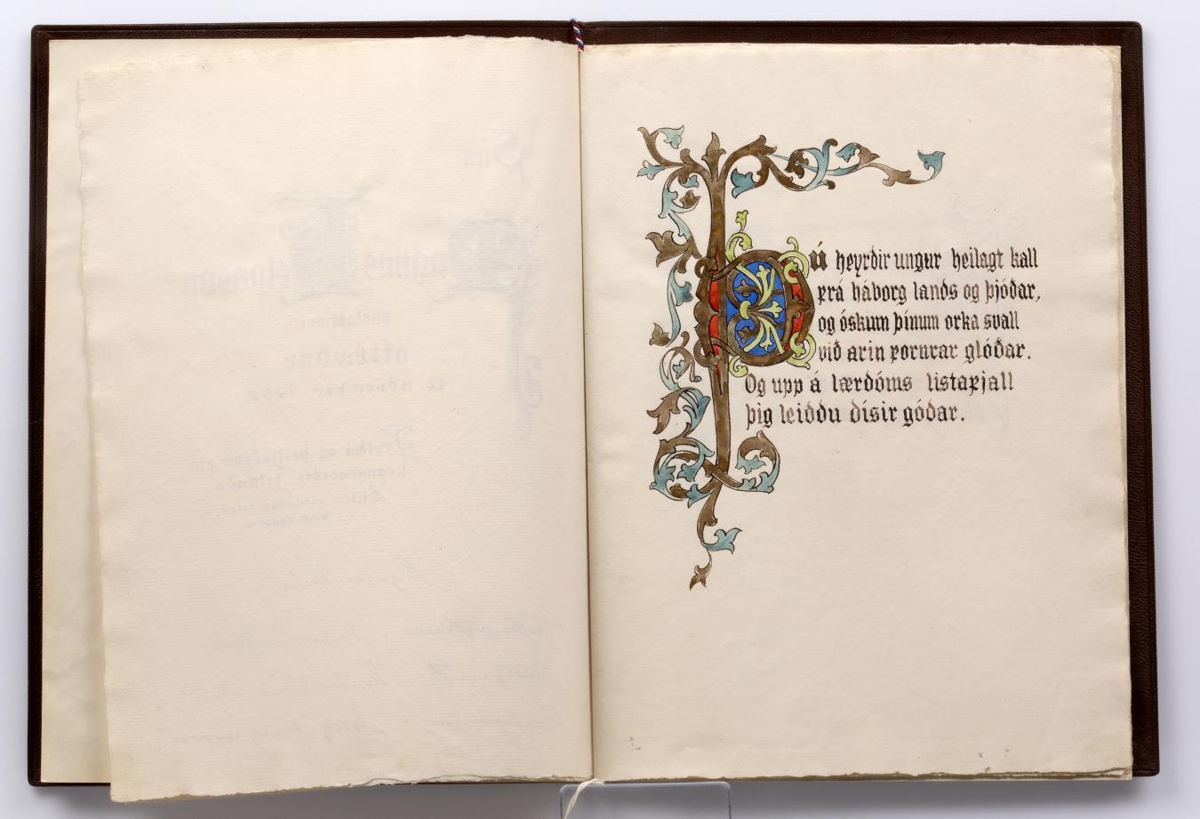 Þú heyrðir ungur heilagt kall
frá háborg lands og þjóðar,
og óskum þínum orka svall
við arin fornrar glóðar.
Og upp á lærdóms listafjall
þig leiddu dísir góðar.